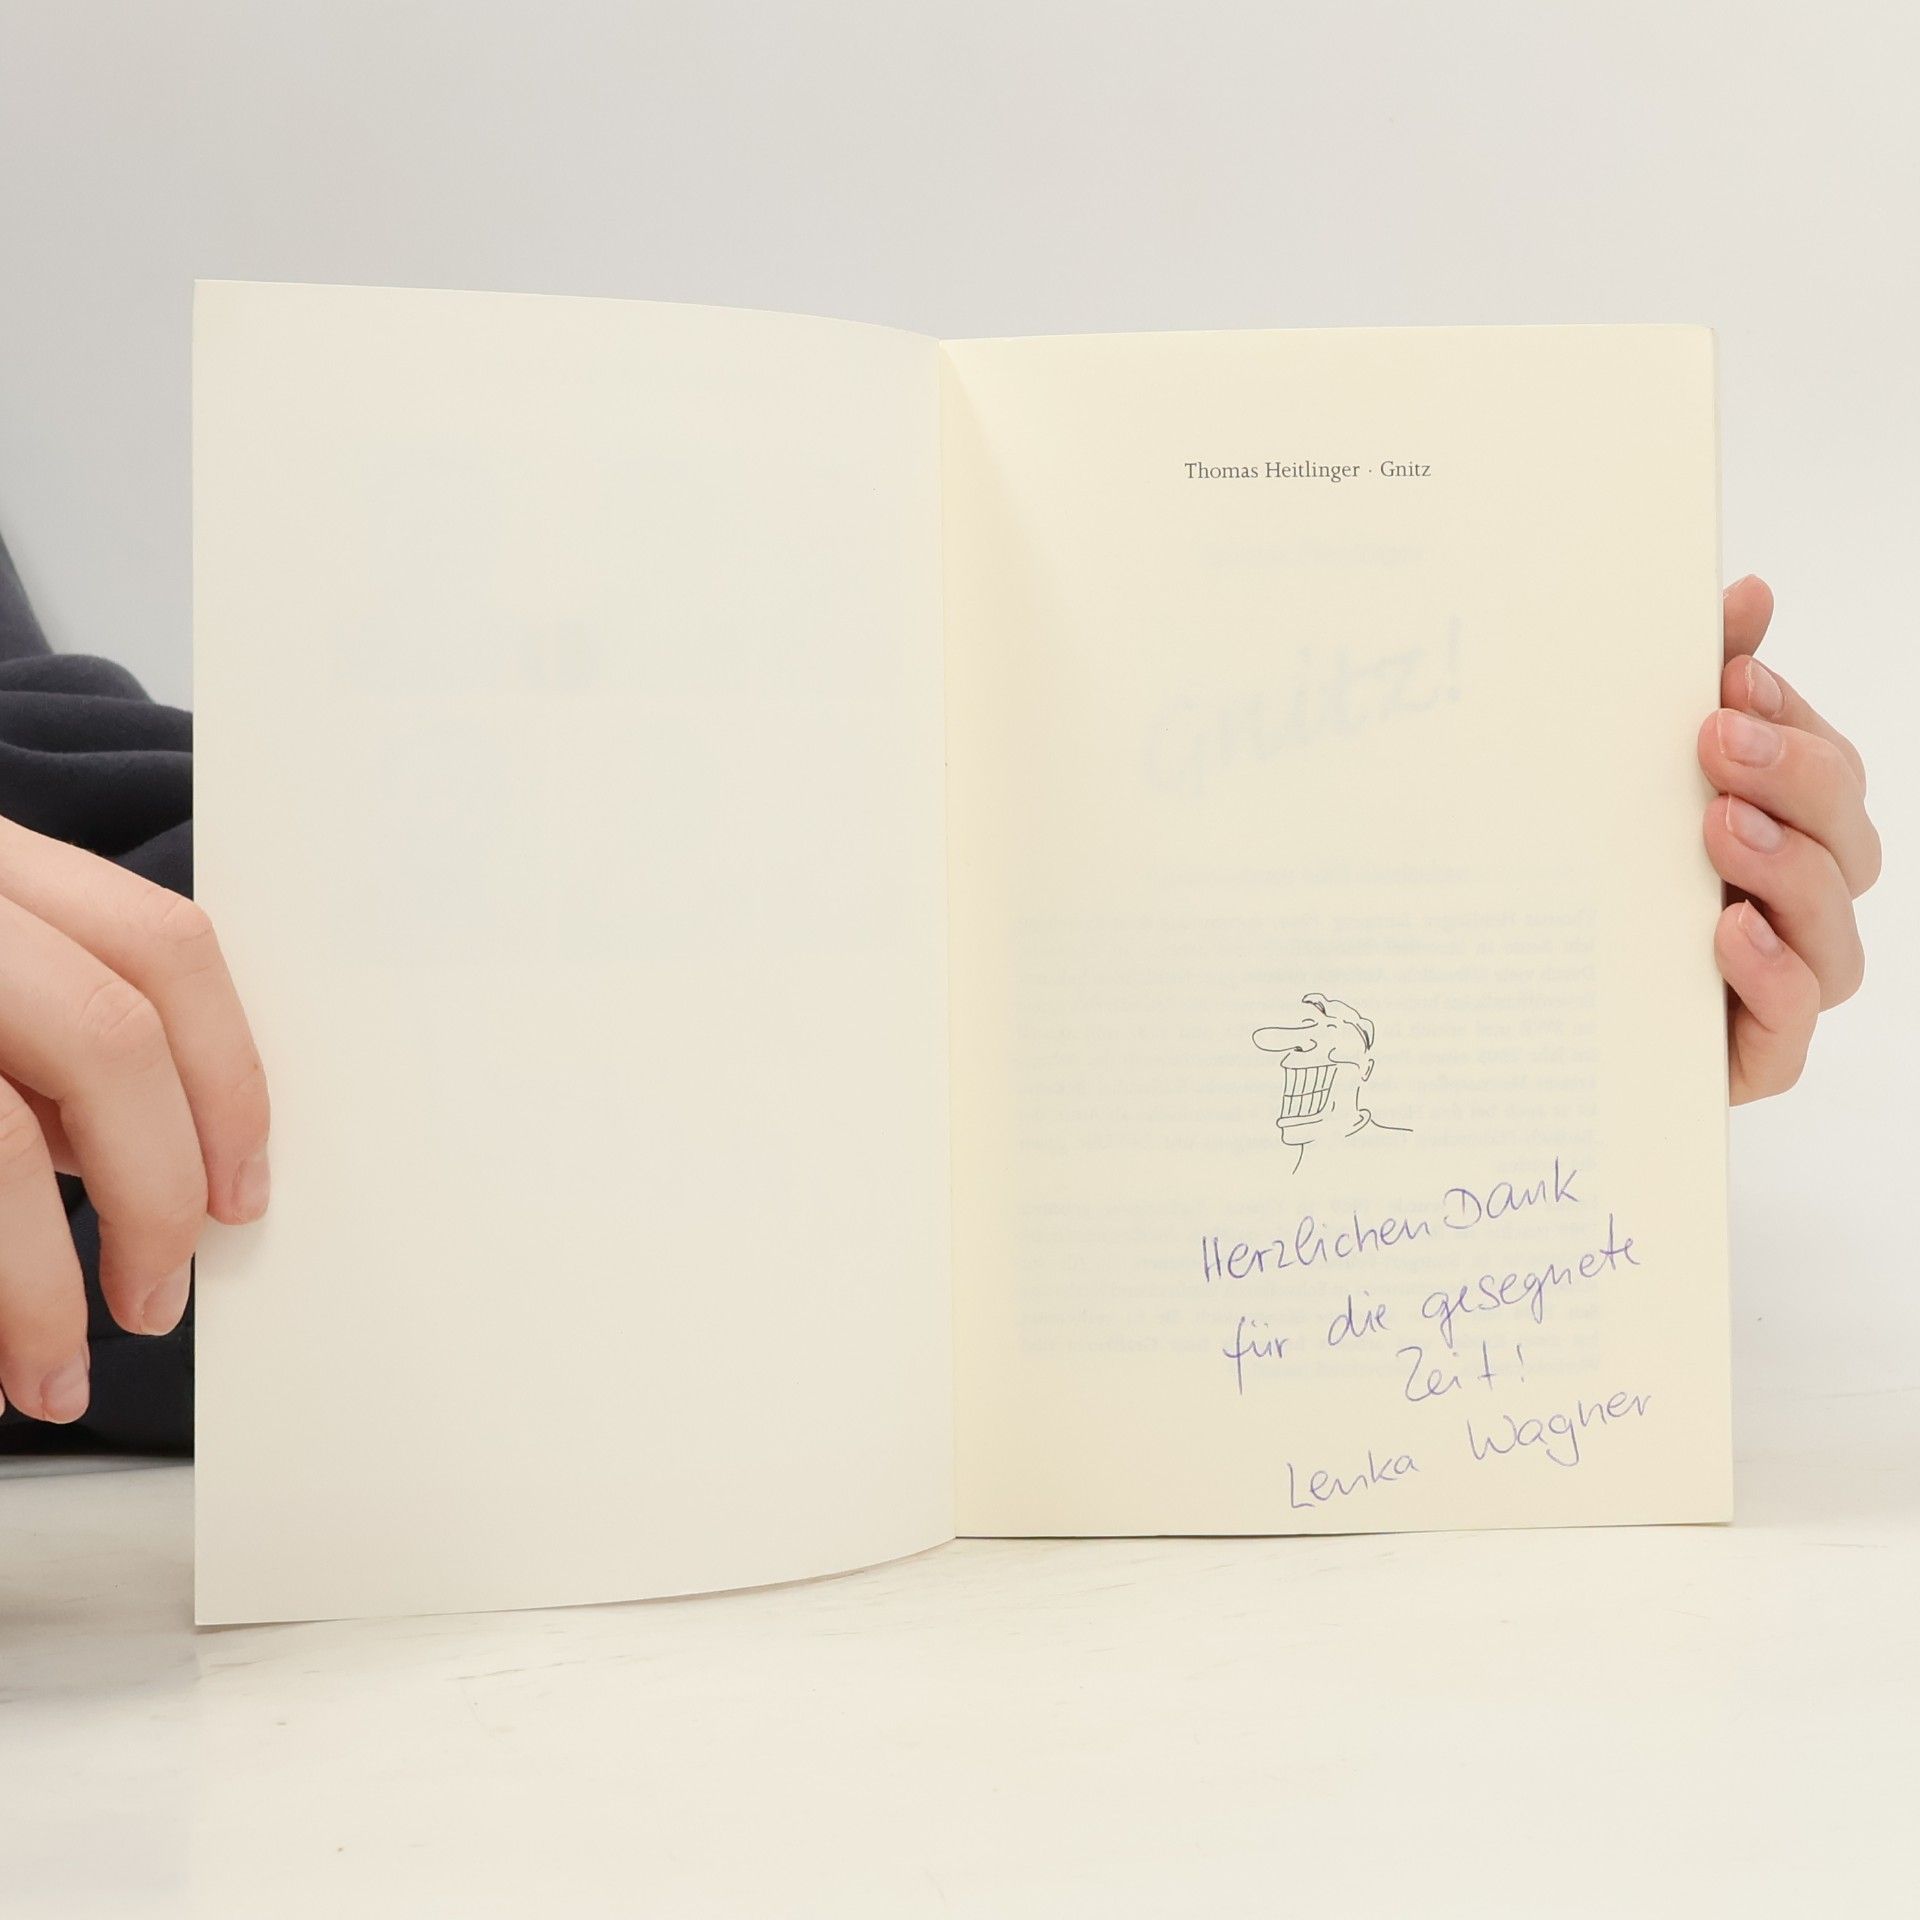 Thomas Heitlinger · Gnitz
Gnitz!
Herzlichen Dank
für die gesegnete
Zeit!
Lenka Wagner